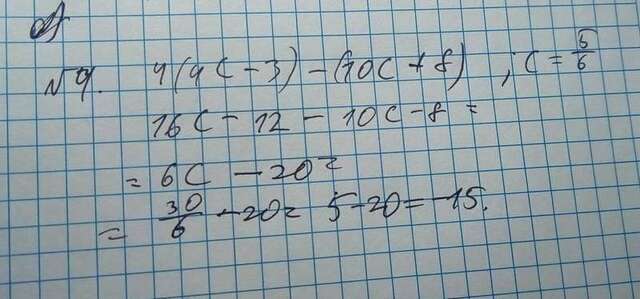 №4. 4(4c-3)-(10c+8) ; c=5/6
16c-12-10c-8=
=6c-20=
=30/6-20= 5-20=-15.